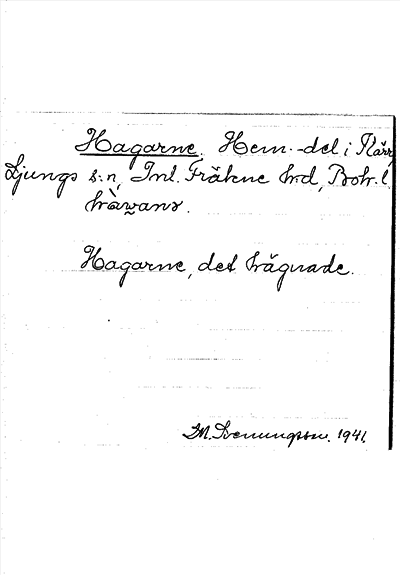 Hagarne. Hem.-del i Kärr,
Ljungs s:n, Inl. Fräkne hrd, Boh. l.
hàwanr.
Hagarne, det hägnade.
M. Svenungsson. 1941.